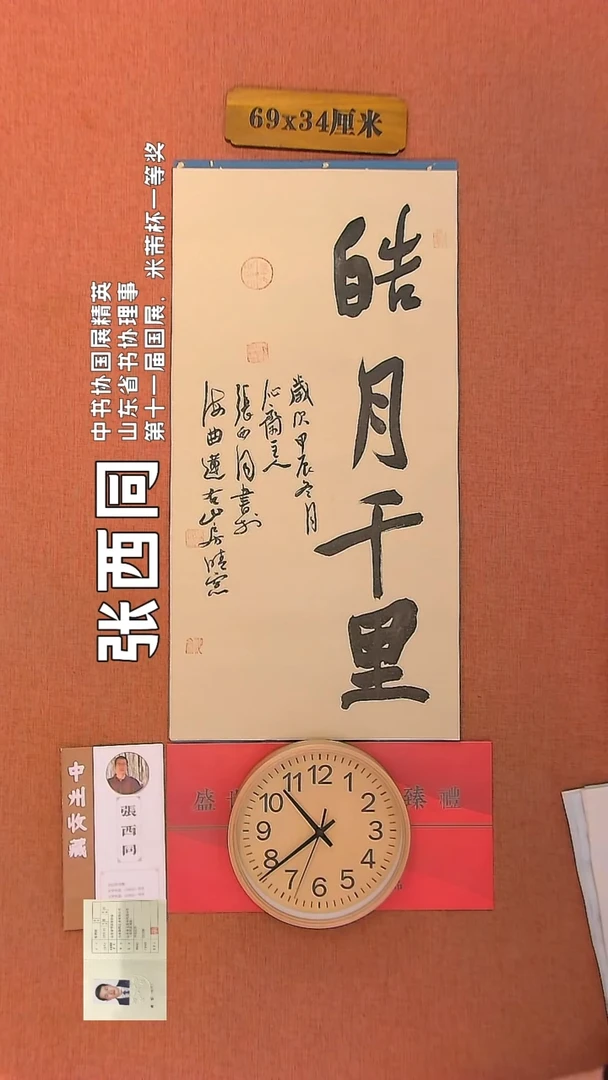 69x34厘米
皓月千里
歲次甲辰冬月
沁齋主人
張西同書於
海曲蓮右山房晴窓
张西同
中书协国展精英
山东省书协理事
第十一届国展，米芾杯一等奖
張西同
盛世
臻禮
12
1
2
3
4
5
6
7
8
9
10
11